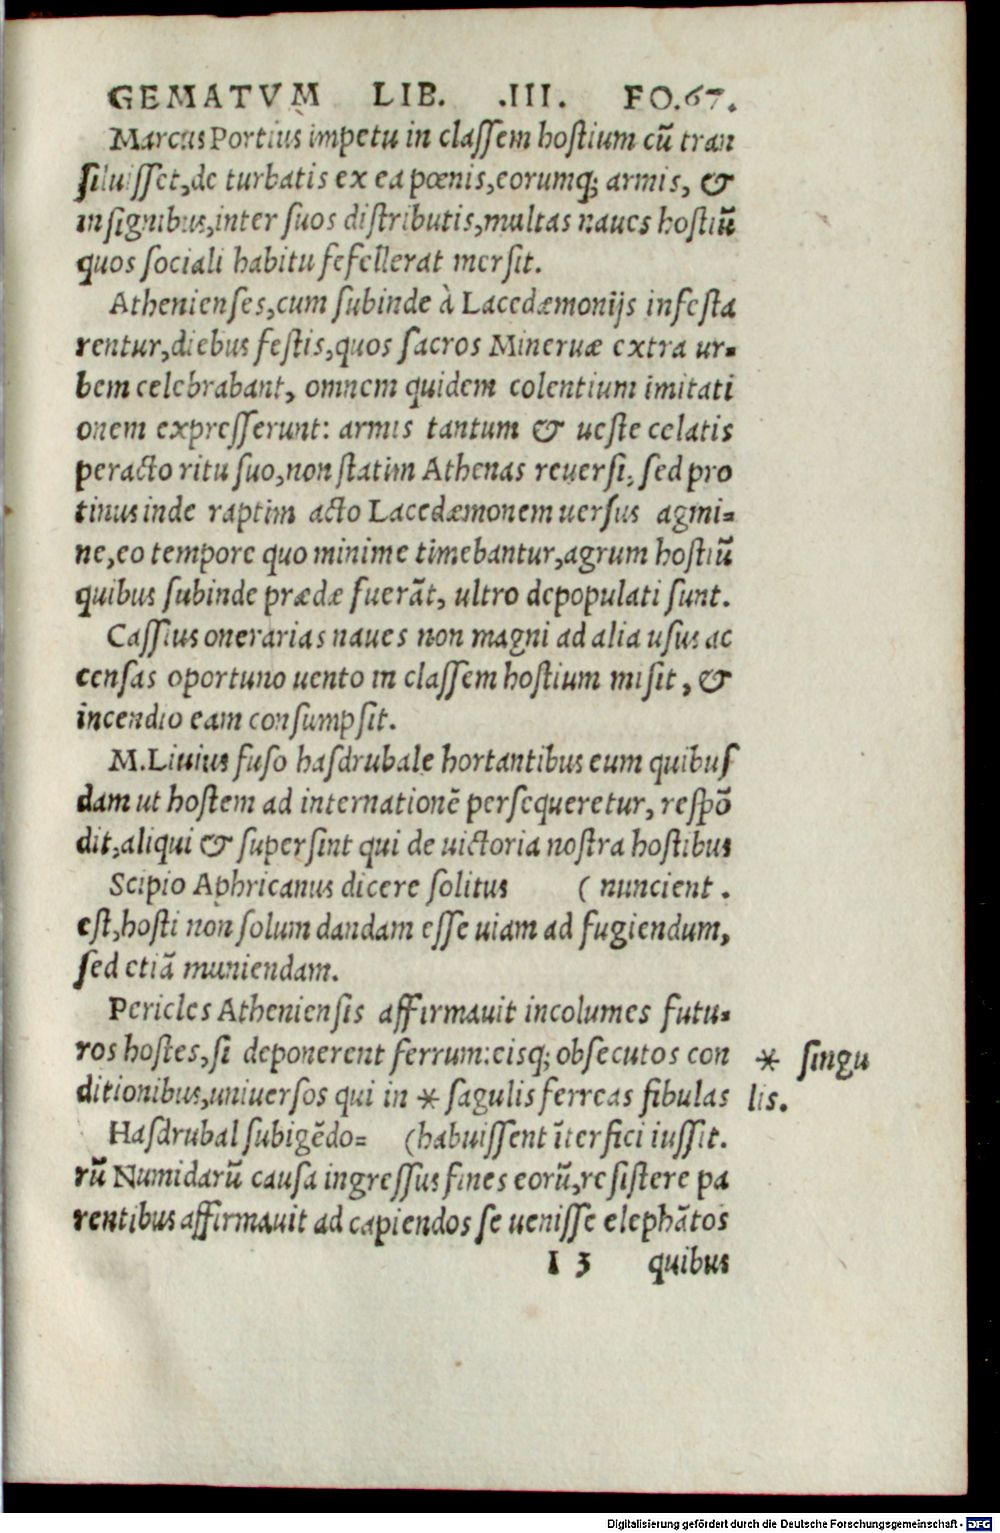 GEMATVM LIB. .III. FO.67.
Marcus Portius impetu in claſſem hoſtium cū tran
ſiluiſſet,de turbatis ex ea pœnis,eorumq; armis, &
inſignibus,inter ſuos diſtributis,multas naues hoſtiū
quos ſociali habitu fefellerat merſit.
Athenienſes,cum ſubinde à Lacedæmonijs infeſta
rentur,diebus feſtis,quos ſacros Mineruæ extra ur=
bem celebrabant, omnem quidem colentium imitati
onem expreſſerunt: armis tantum & ueſte celatis
peracto ritu ſuo,non ſtatim Athenas reuerſi, ſed pro
tinus inde raptim acto Lacedæmonem uerſus agmi=
ne,eo tempore quo minime timebantur,agrum hoſtiū
quibus ſubinde prædæ fuerāt, ultro depopulati ſunt.
Caſſius onerarias naues non magni ad alia uſus ac
cenſas oportuno uento in claſſem hoſtium miſit, &
incendio eam conſumpſit.
M.Liuius fuſo haſdrubale hortantibus eum quibuſ
dam ut hoſtem ad internationē perſequeretur, reſpō
dit,aliqui & ſuperſint qui de uictoria noſtra hoſtibus
Scipio Aphricanus dicere ſolitus ( nuncient.
eſt,hoſti non ſolum dandam eſſe uiam ad fugiendum,
ſed etiā muniendam.
Pericles Athenienſis affirmauit incolumes futu=
ros hoſtes,ſi deponerent ferrum:eisq; obſecutos con * ſingu
ditionibus,uniuerſos qui in * ſagulis ferreas fibulas lis.
Haſdrubal ſubigēdo= (habuiſſent īterfici iuſſit.
rū Numidarū cauſa ingreſſus fines eorū,reſiſtere pa
rentibus affirmauit ad capiendos ſe ueniſſe elephātos
I 3 quibus
Digitalisierung gefördert durch die Deutsche Forschungsgemeinschaft - DFG